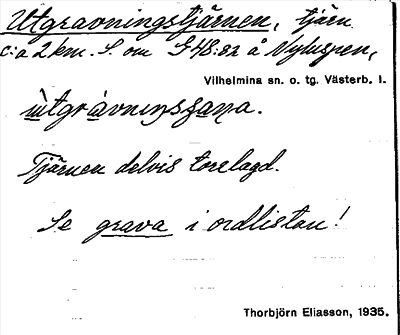 Utgravningstjärnen, tjärn
c:a 2 km. S. om G48:82 å Nyluspen,
Vilhelmina sn. o. tg. Västerb. l.
ùtgràvninsʒana.
Tjärnen delvis torrlagd.
Se grava i ordlistan!
Thorbjörn Eliasson, 1935.